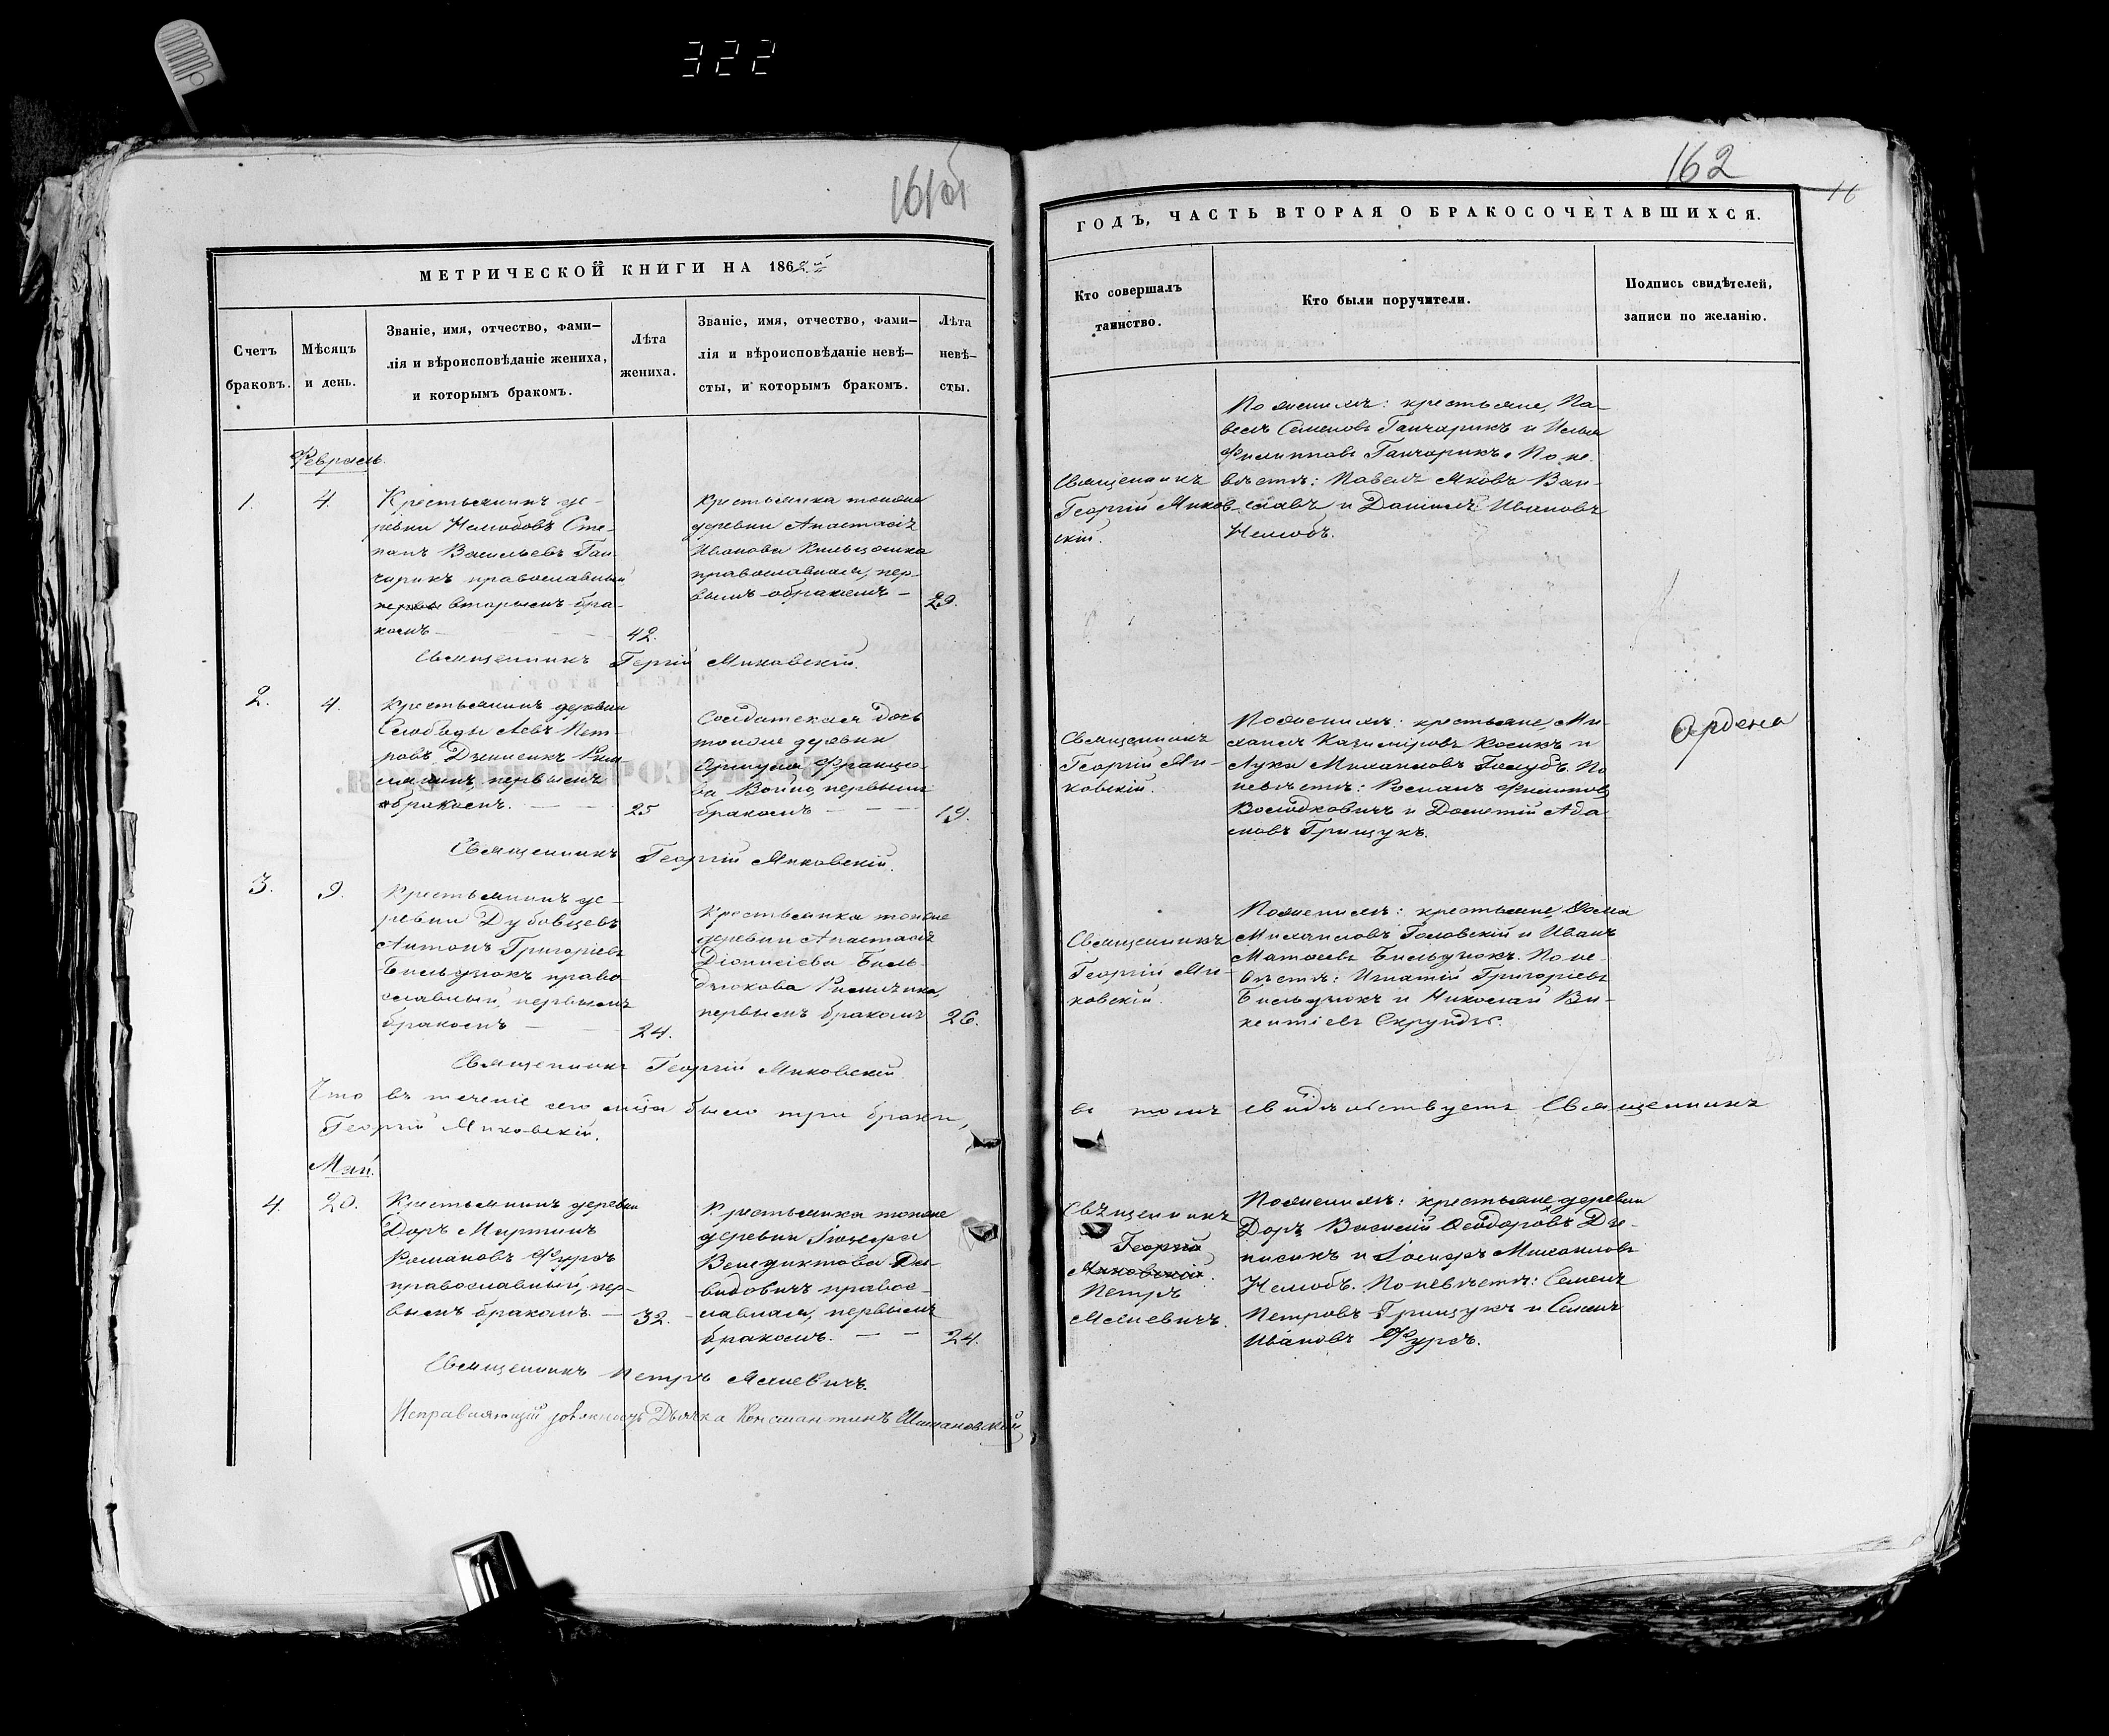 322
161об
МЕТРИЧЕСКОЙ КНИГИ НА 1862й
Счетъ
браковъ.
Мѣсяцъ
и день.
Званіе, имя, отчество, фами-
лія и вѣроисповѣданіе жениха,
и которымъ бракомъ.
Лѣта
жениха.
Званіе, имя, отчество, фами-
лія и вѣроисповѣданіе невѣ-
сты, и которымъ бракомъ.
Лѣта
невѣ-
сты.
Февраль.
1.
4.
Крестьянинъ де-
ревни Нелюбовъ Сте-
панъ Васильевъ Ган
чарикъ православный
вторымъ бра-
комъ
42.
Крестьянка тоиже
деревни Анастасія
Иванова
православная, пер-
вымъ бракомъ
29.
Священникъ Георгій Миковскій.
2.
4.
Крестьянинъ деревни
Слободы Левъ Пет-
ровъ Денисикъ Рим
первымъ
бракомъ.
25
Солдатская дочь
тоиже деревни
Францо-
ва Война, первымъ
бракомъ
19.
Священникъ Георгій Миковскій.
3.
9.
Крестьянинъ де-
ревни Дубовцевъ
Антонъ Григоріевъ
Бильдзюкъ право
славный, первымъ
бракомъ
24.
Крестьянка тоиже
деревни Анастасія
Діонисіева Биль-
дзюкова Римлянка,
первымъ бракомъ
26.
Священникъ Георгій Миковскій
Что въ теченіе сего м-ца было три брака,
Георгій Миковскій.
Май.
4.
20.
Крестьянинъ деревни
Доръ Мартинъ
Романовъ Фурсъ
православный, пер-
вымъ бракомъ.
32.
Крестьянка тоиже
деревни Іозефа
Венедиктова Да-
видовичъ правос-
лавная, первымъ
бракомъ.
24.
Священникъ Петръ
Исправляющій должность Дьячка Константинъ
162
16
ГОДЪ, ЧАСТЬ ВТОРАЯ О БРАКОСОЧЕТАВШИХСЯ.
Кто совершалъ
таинство.
Кто были поручители.
Подпись свидѣтелей,
записи по желанію.
Священникъ
Георгій Миков-
скій.
По женихѣ: крестьяне, Па-
велъ Семеновъ Ганчарикъ и Илья
Филипповъ Ганчарикъ. По не-
вѣстѣ: Павелъ Яковъ Вои-
славъ и Даніилъ Ивановъ
Нелюбъ.
Священникъ
Георгій Ми-
ковскій.
По женихѣ: крестьяне, Ми-
хаилъ Казимировъ Косикъ и
Лука Михаиловъ Голубъ. По
невѣстѣ: Романъ Филиповъ
Володковичъ и Дометій Ада
мовъ Грищукъ.
Ордена
Священникъ
Георгій Ми-
ковскій.
По женихѣ: крестьяне, Фома
Михаиловъ Головскій и Иванъ
Матѳеевъ Бильдзюкъ. По не-
вѣстѣ: Игнатій Григоріевъ
Бильдзюкъ и Николай Ви-
кентіевъ Скрундь.
въ томъ свидѣтельствуетъ Священникъ
Священникъ
Георгій
Миковскій.
Петръ
По женихѣ: крестьяне деревни
Доръ Василій Ѳеодоровъ Де-
нисикъ и Іосифъ Михаиловъ
Нелюбъ. По невѣстѣ: Семенъ
Петровъ Грищукъ и Семенъ
Ивановъ Фурсъ.